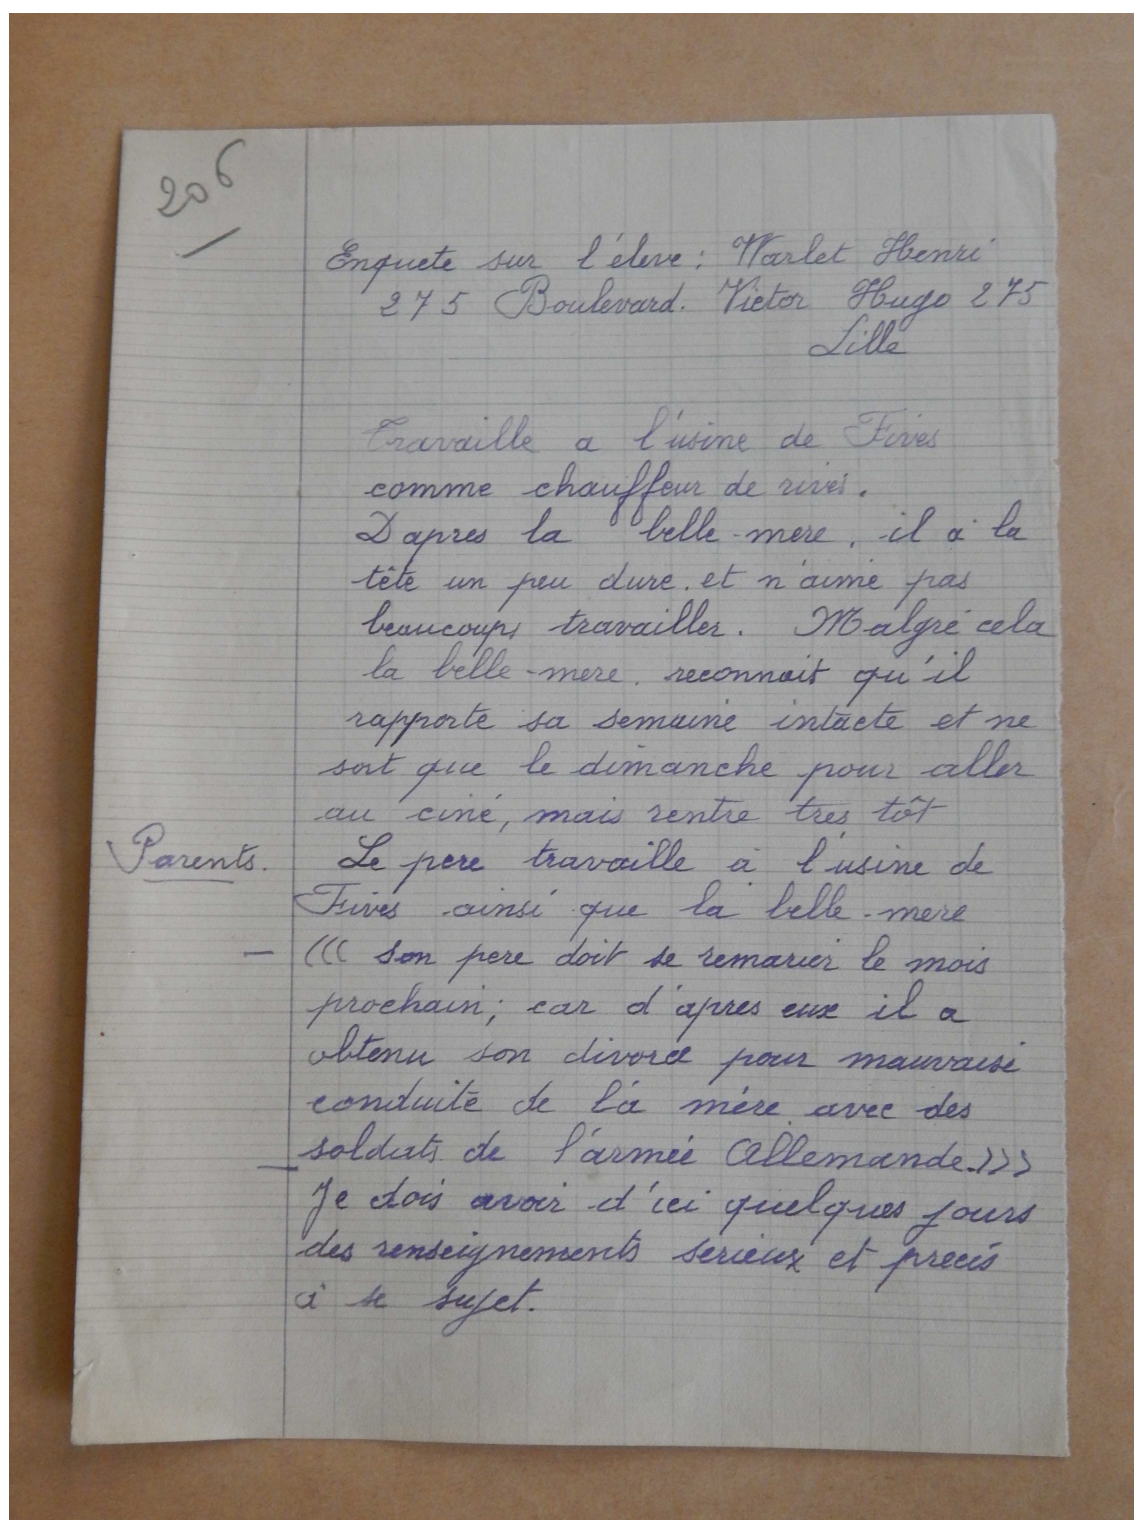 206
Enquete sur l'éleve : Warlet Henri
275 Boulevard. Victor Hugo 275
Lille
Travaille a l'usine de Fives
comme chauffeur de rives.
D'apres la belle-mere, il a la
tête un peu dure. et n'aime pas
beaucoups travailler. Malgré cela
la belle-mere. reconnait qu'il
rapporte sa semaine intacte et ne
sort que le dimanche pour aller
au ciné, mais rentre tres tôt
Parents. Le pere travaille à l'usine de
Fives ainsi que la belle-mere
— ((( son pere doit se remarier le mois
prochain; car d'apres eux il a
obtenu son divorce pour mauvaise
conduite de la mère avec des
— soldats de l'armée Allemande.)))
Je dois avoir d'ici quelques jours
des renseignements serieux et precis
à se sujet.